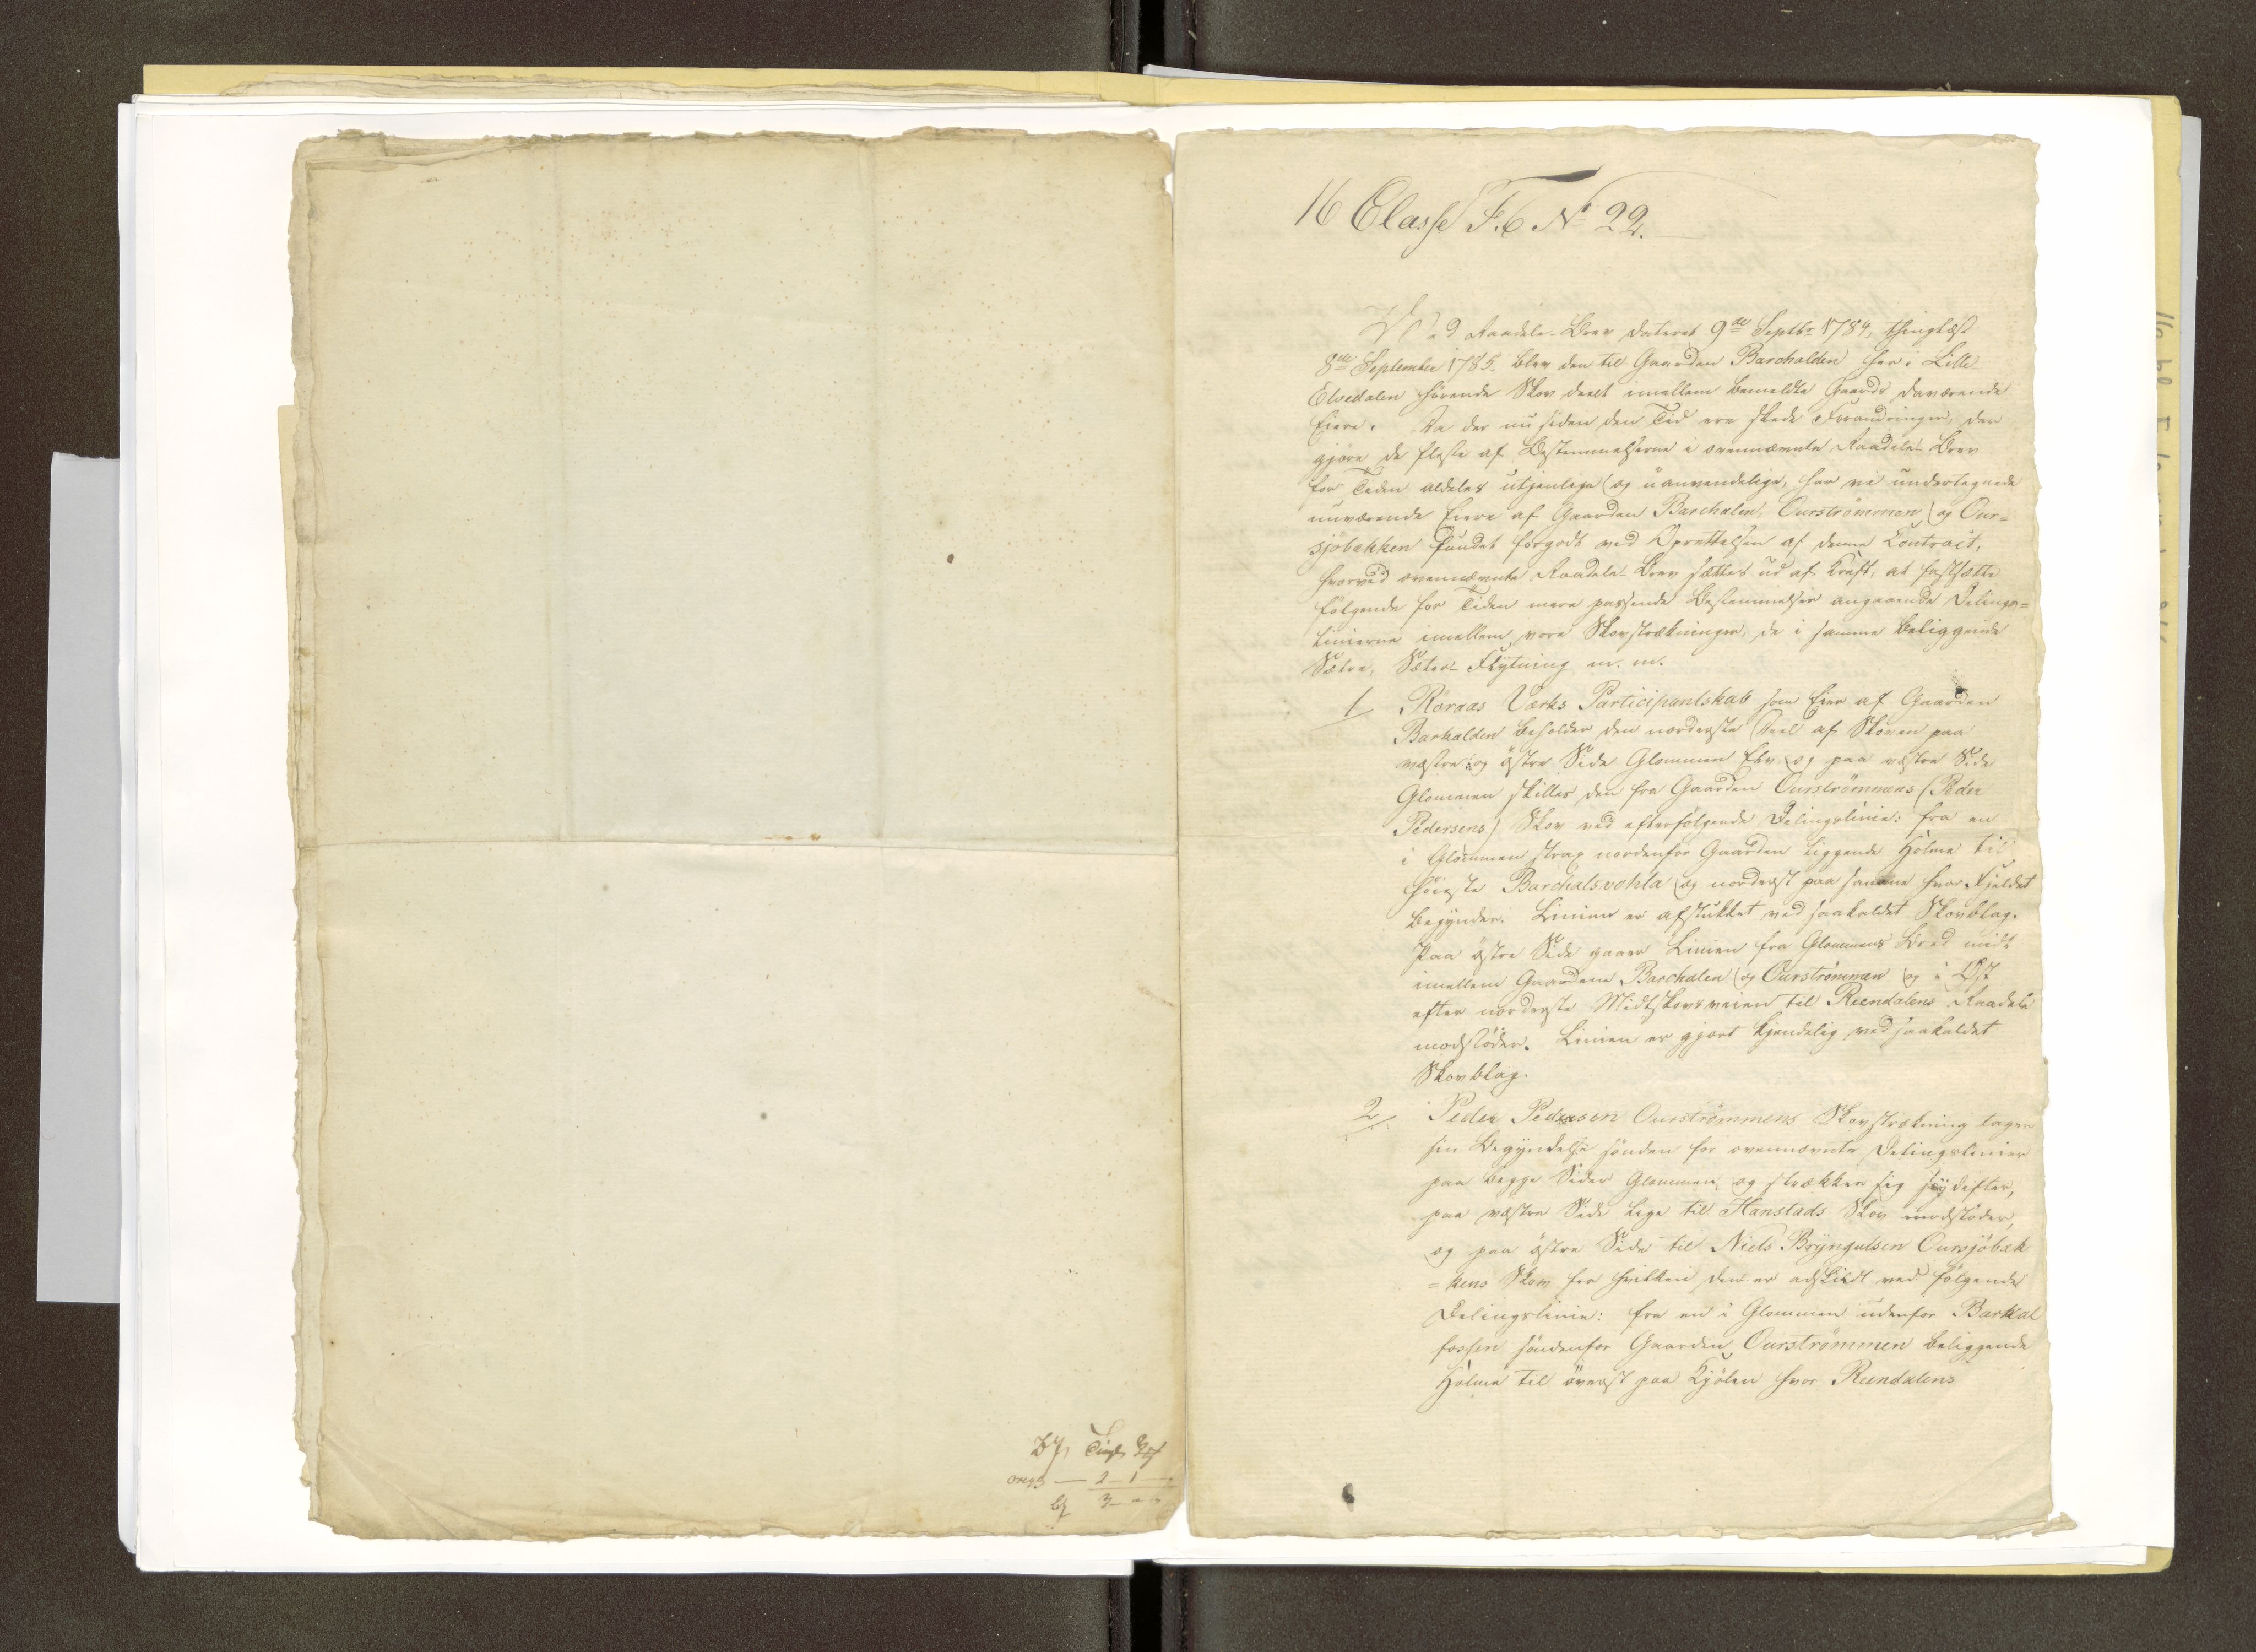 16 Classe F. 6 No 22.
Ved Raadele-Brev dateret 9de Septbr 1784, thinglæst
8de September 1785. blev den til Gaarden Barchalden her i Lille
Elvedalen hørende Skov deelt imellem bemeldte Gaards daværende
Eiere. Da der nu siden den Tid ere skede Forandringer, der
gjøre de fleste af Bestemmelserne i ovennævnte Raadele-Brev
for Tiden aldeles utjenlige og uanvendelige, har vi undertegnede
nuværende Eiere af Gaarden Barchalen, Ourstrømmen og Our=
sjøbækken fundet forgodt ved Oprettelsen af denne Contract,
hvorved ovennævnte Raadele-Brev sættes ud af Kraft, at fastsætte
følgende for Tiden mere passende Bestemmelser angaaende Delings=
Linierne imellem vore Skovstrækninger, de i samme beliggende
Sætre, Sæter-Flytning m. m.
1 Røraas Værks Participantskab som Eier af Gaarden
Barkalden beholder den nordenste Deel af Skoven paa
vestre og østre Side Glommen Elv, og paa vestre Side
Glommen skilles den fra Gaarden Ourstrømmens (Peder
Pedersens) Skov ved efterfølgende Delingslinie: fra en
i Glommen strax nordenfor Gaarden liggende Holme til
høieste Barchalsvohla og norderst paa samme hvor Fjeldet
begynder. Linien er afstukket ved saakaldet Skovblag.
Paa østre Side gaaer Linien fra Glommens Bred midt
imellem Gaardene Barchalen og Ourstrømmen og i Øst
efter norderste Midtskovsveien til Reendalens Raadele
modstøder. Linien er gjort kjendelig ved saakaldet
Skovblag.
2 Peder Pedersen Ourstrømmens Skovstrækning tager
sin Begyndelse sønden for ovennævnte Delingslinier
paa begge Sider Glommen og strækker sig sydefter,
paa vestre Side lige til Hanstads Skov modstøder,
og paa østre Side til Niels Bryngulsen Oursjøbæk
=kens Skov fra hvilken den er adskildt ved følgende
Delingslinie: fra en i Glommen udenfor Barkal
fossen søndenfor Gaarden Ourstrømmen beliggende
Holme til øverst paa Kjølen hvor Reendalens
2 – 1
3 – –